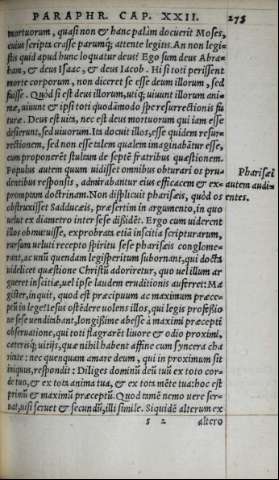 PARAPHR. CAP. XXII. 275
mortuorum, quasi non & hanc palàm docuerit Moses,
cuius scripta crassè parumq; attentè legitis. An non legi-
stis quid apud hunc loquatur deus? Ego sum deus Abra-
ham, & deus Isaac, & deus Iacob. Hi si toti perissent
morte corporum, non diceret se esse deum illorum, sed
fuisse. Quòd si est deus illorum, utiq; uiuunt illorum ani-
mæ, uiuunt & ipsi toti quodāmodo spe resurrectionis fu
turæ. Deus est uita, nec est deus mortuorum qui iam esse
desierunt, sed uiuorum. Ita docuit illos, esse quidem resur-
rectionem, sed non esse talem qualem imaginabātur esse,
cum proponerēt stultam de septē fratribus quæstionem.
Populus autem quum uidisset omnibus obturari os pru-
dentibus responsis, admirabantur eius efficacem & ex-
promptam doctrinam. Non displicuit pharisæis, quòd os
obstruxisset Sadducæis, præsertim in argumento, in quo
uelut ex diametro inter sese dissidēt. Ergo cum uiderent
illos obmutuisse, exprobrata etiā inscitia scripturarum,
rursum ueluti recepto spiritu sese pharisæis conglome-
rant, ac unū quendam legisperitum subornant, qui docta
uidelicet quæstione Christū adoriretur, quo uel illum ar
gueret inscitiæ, uel ipse laudem eruditionis auferret: Ma
gister, inquit, quod est præcipuum ac maximum præce-
ptū in lege? Iesus ostēdere uolens illos, qui legis professio
ne sese uenditabant, longissime abesse à maximi præcepti
obseruatione, qui toti flagrarēt liuore & odio proximi,
cæterisq; uitijs, quæ nihil habent affine cum syncera cha
ritate: nec quenquam amare deum, qui in proximum sit
iniquus, respondit: Diliges dominū deū tuū ex toto cor-
de tuo, & ex tota anima tua, & ex tota mēte tua: hoc est
primū & maximū præceptū. Quod tamē nemo uere ser-
uat, nisi seruet & secundū, illi simile. Siquidē alterum ex
s 2 altero
Pharisæi
autem audi
entes.